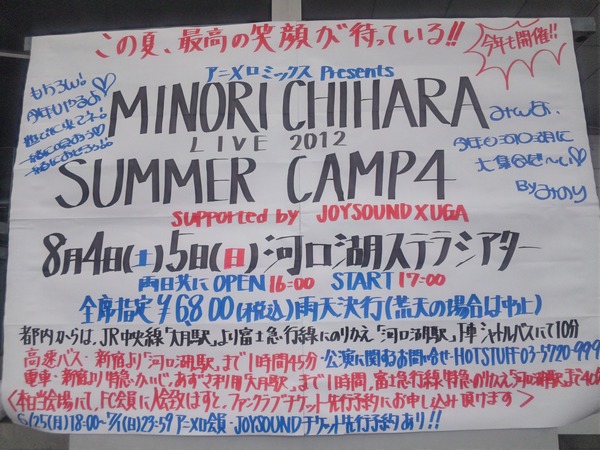 この夏、最高の笑顔が待っている!!
今年も開催!!
アニメロミックス Presents
もちろん!
今年もやるよ
MINORI CHIHARA
LIVE 2012
SUMMER CAMP4
みんな、
今年も河口湖に
大集合だ〜い♡
By みのり
SUPPORTED by JOYSOUND X UGA
8月4日(土)5日(日)河口湖ステラシアター
両日共に OPEN 16:00 START 17:00
全席指定 ¥6,800(税込)雨天決行(荒天の場合は中止)
都内からは、JR中央線「大月駅」より富士急行線にのりかえ「河口湖駅」下車 シャトルバスにて10分
高速バス・新宿より「河口湖駅」まで1時間45分・公演に関するお問合せ・HOTSTUFF 03-5720-999
電車・新宿より特急・かいじ、あずさ利用「大月駅」まで1時間、富士急行線・特急のりかえ「河口湖駅」まで40
<本日当会場にて、FC会員に入会致しますと、ファンクラブチケット先行予約にお申し込み頂けます>
6/25(月)18:00〜7/1(日)23:59 アニメロ会員・JOYSOUNDチケット先行予約あり!!